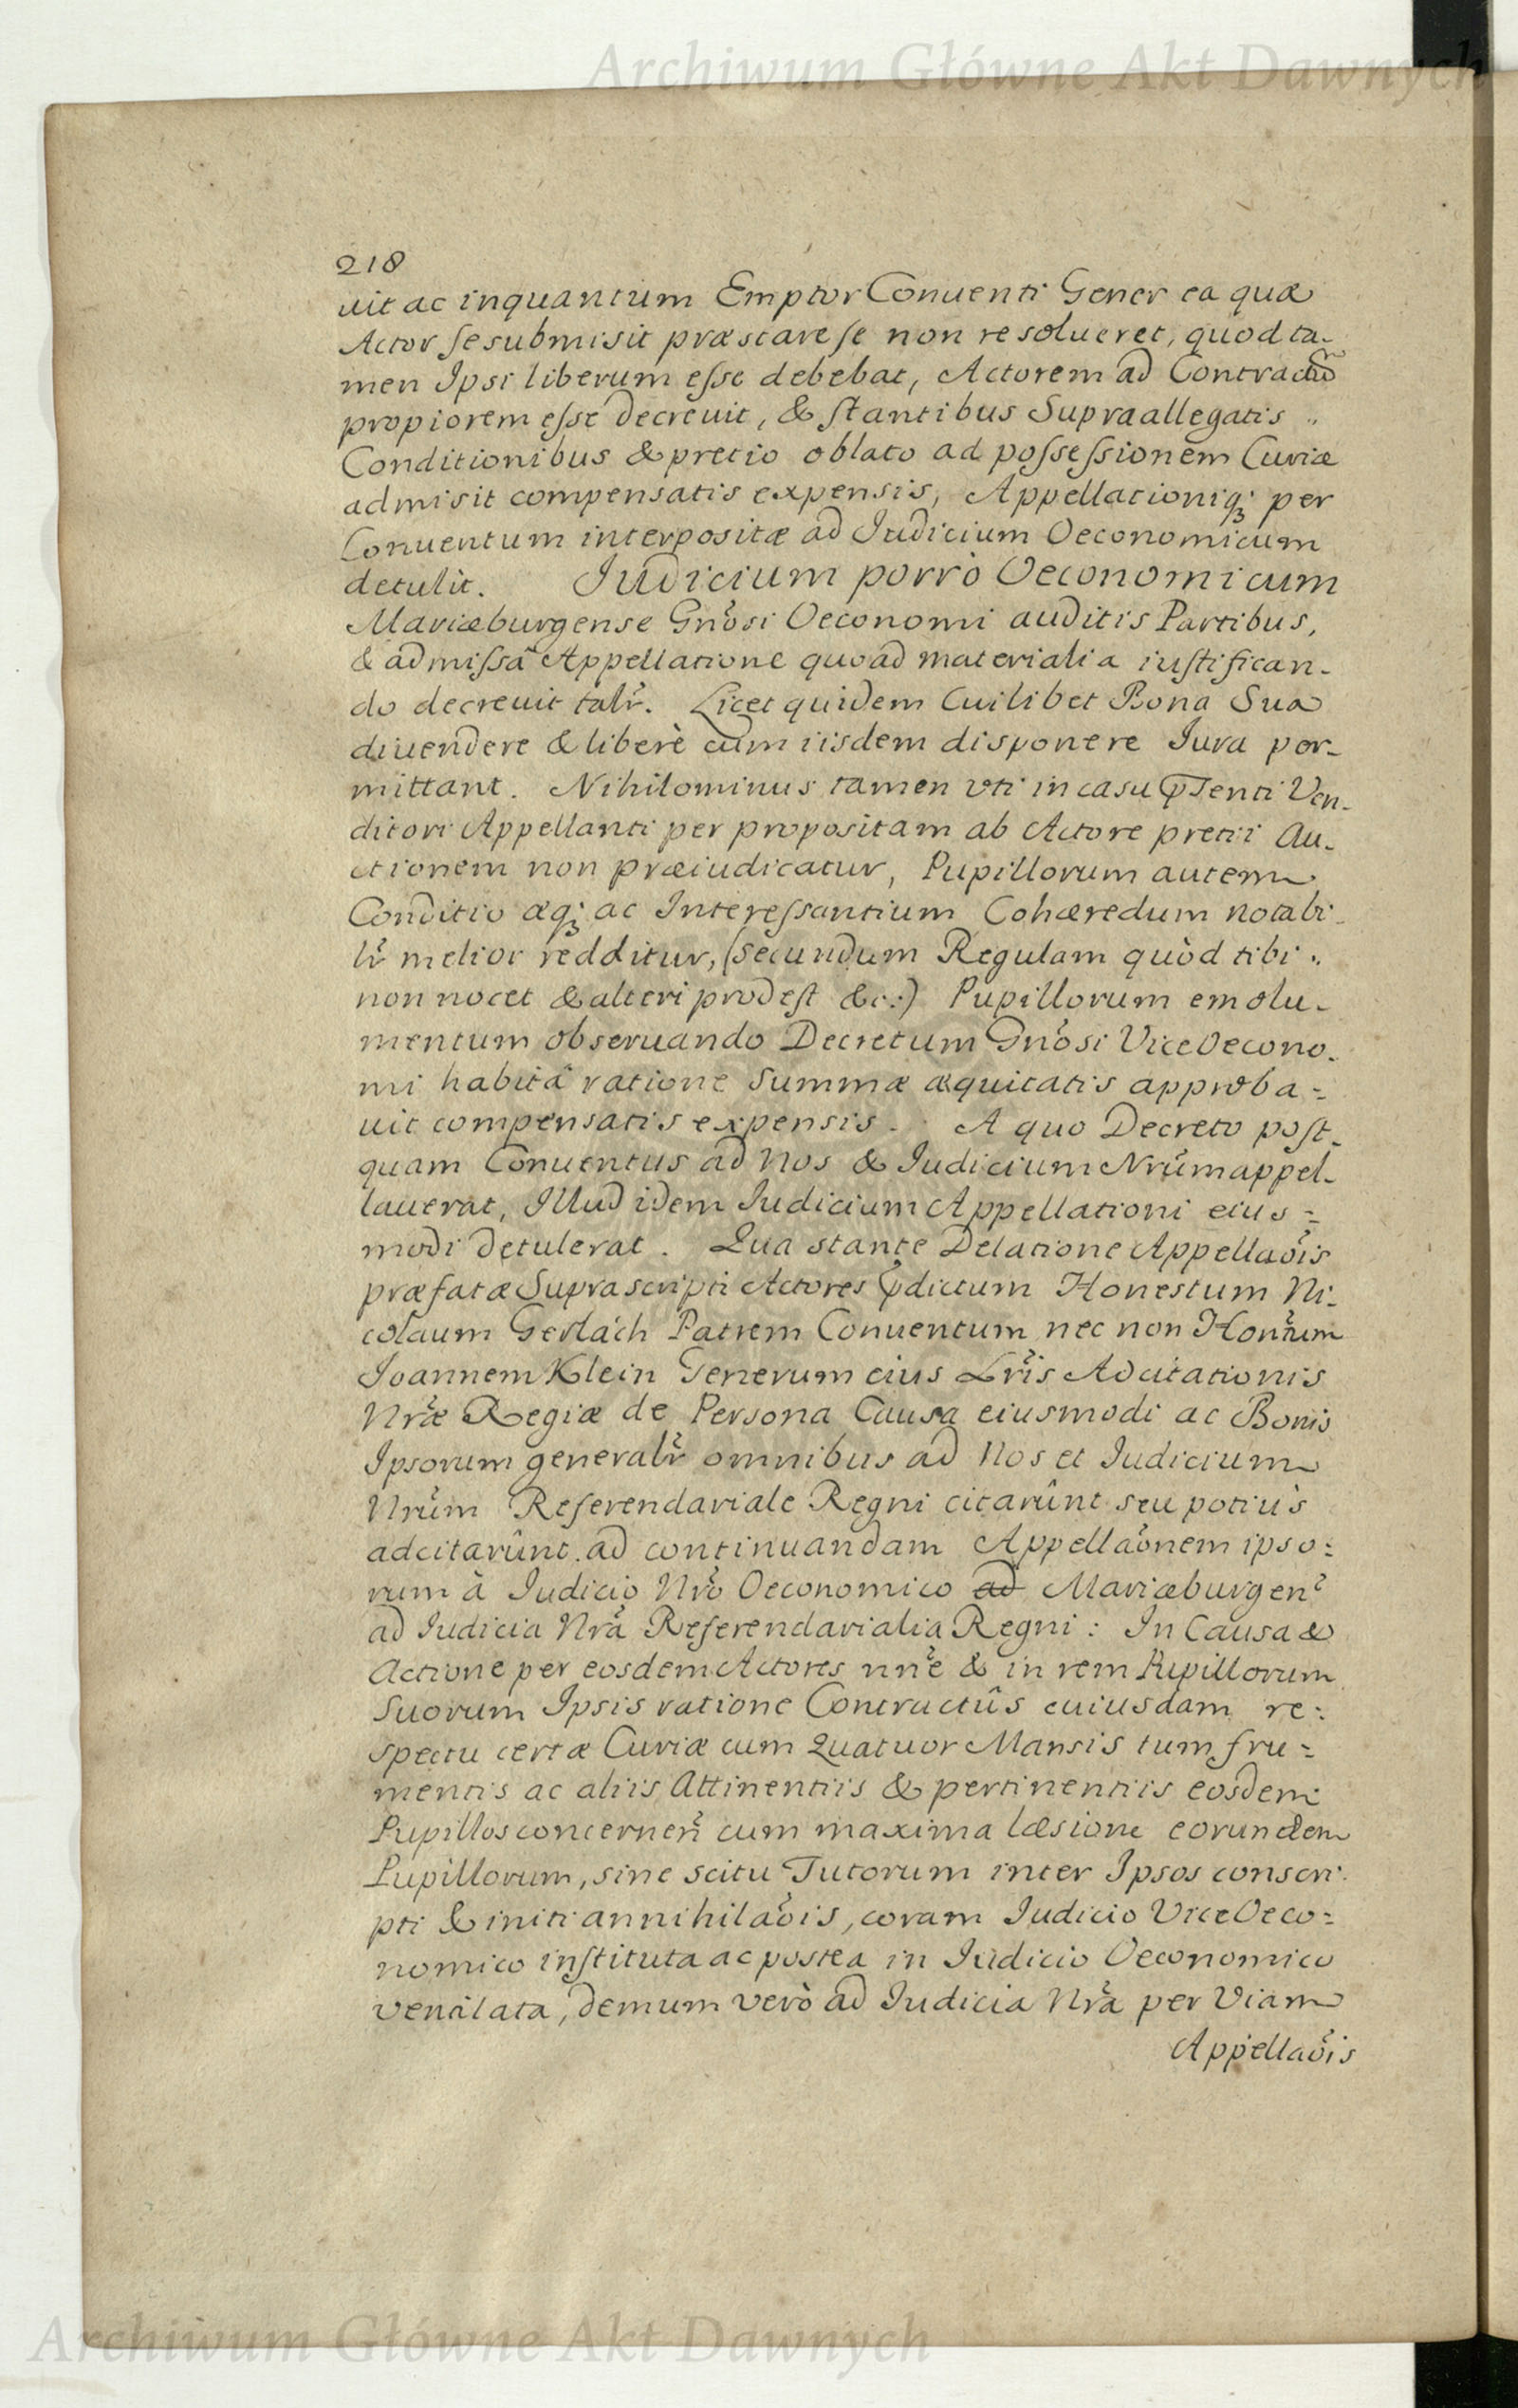 Archiwum Główne Akt Dawnych
218
uit ac inquantum Emptor Conuenti Gener ea quæ
Actor se submisit præstare se non resolueret, quod ta-
men Ipsi liberum eſse debebat, Actorem ad Contractũ
propiorem eſse decreuit, & ſtantibus Supraallegatis „
Conditionibus & pretio oblato ad poſseſsionem Curiæ
admisit compensatis expensis, Appellationiqꝫ per
Conuentum interpositæ ad Judicium Oeconomicum
detulit. Judicium porrò Oeconomicum
Mariæburgense Gnõsi Oeconomi auditis Partibus,
& admiſsâ Appellatione quoad materialia iuſtifican-
do decreuit talr̃. Licet quidem Cuilibet Bona Sua
diuendere & liberè cum iisdem disponere Jura per-
mittant. Nihilominus tamen vti in casu p̃senti Ven-
ditori Appellanti per propositam ab Actore pretii Au-
ctionem non præiudicatur, Pupillorum autem
Conditio æqꝫ ac Interessantium Cohæredum notabi-
lr̃ melior redditur, (secundum Regulam quòd tibi „
non nocet & alteri prodeſt &c:) Pupillorum emolu-
mentum obseruando Decretum Gnõsi ViceOecono-
mi habitâ ratione Summæ æquitatis approba=
uit compensatis expensis. A quo Decreto poſt-
quam Conuentus ad Nos & Iudicium Nrũm appel-
lauerat, Illud idem Iudicium Appellationi eius=
modi detulerat. Qua stante Delatione Appellaõis
præfatæ Suprascripti Actores p̃dictum Honestum Ni-
colaum Gerlach Patrem Conuentum nec non Honr̃um
Joannem Klein Generum eius Lrĩs Adcitationis
Nræ̃ Regiæ de Persona Causa eiusmodi ac Bonis
Ipsorum generalr̃ omnibus ad Nos et Iudicium
Nrũm Referendariale Regni citarûnt seu potiùs
adcitarûnt. ad continuandam Appellaõnem ipso=
rum à Iudicio Nrõ Oeconomico ad Mariæburgen̉
ad Iudicia Nrã Referendarialia Regni: In Causa &
Actione per eosdem Actores nnẽ & in rem Pupillorum
Suorum Ipsis ratione Contractûs cuiusdam re=
spectu certæ Curiæ cum Quatuor Mansis tum fru=
mentis ac aliis Attinentiis & pertinentiis eosdem
Pupillos concerneñ cum maxima læsione eorundem
Pupillorum, sine scitu Tutorum inter Ipsos conscri-
pti & initi annihilaõis, coram Iudicio ViceOeco=
nomico inſtituta ac postea in Iudicio Oeconomico
ventilata, demum verò ad Iudicia Nrã per Viam
Appellaõis
Archiwum Główne Akt Dawnych